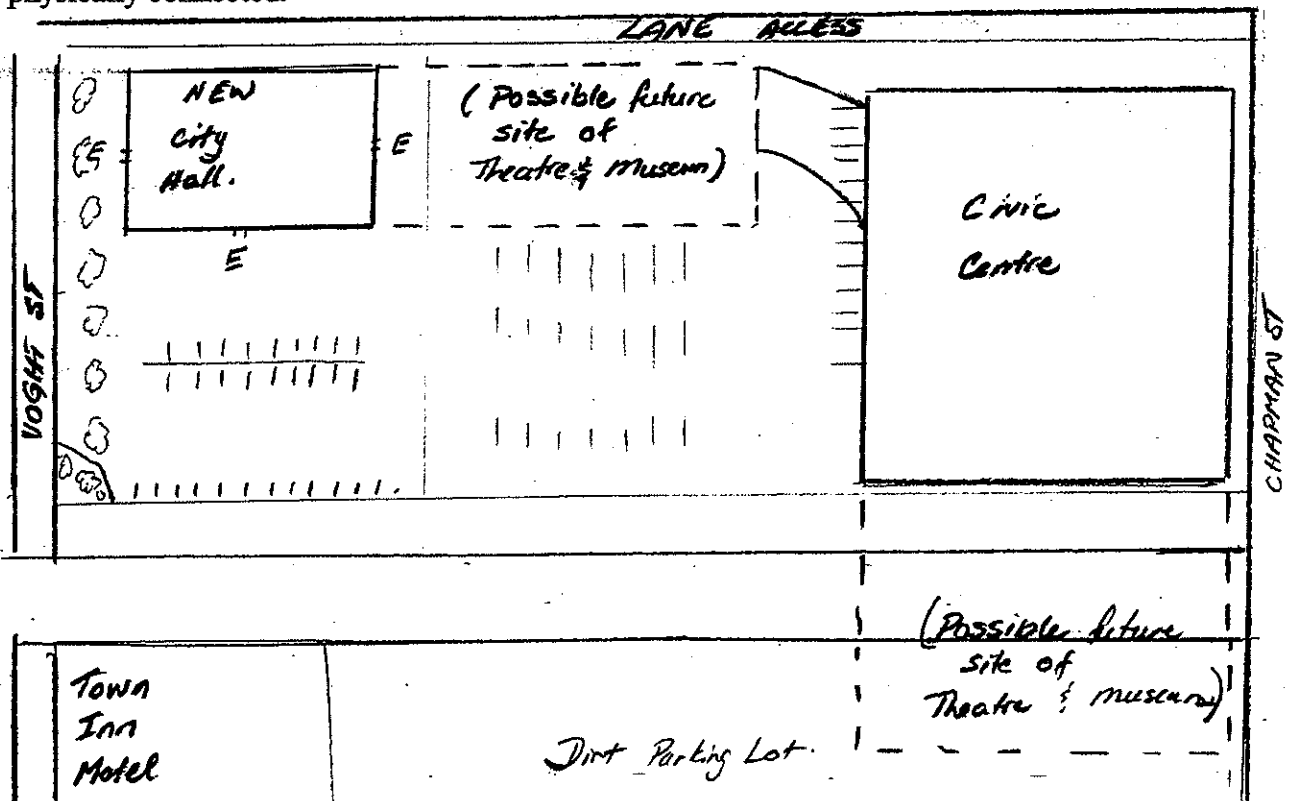 physically connected
LANE ACCESS
NEW
City
Hall.
E
E
E
(Possible future
site of
Theatre & Museum)
Civic
Centre
VOGHT ST
CHAPMAN ST
(Possible future
site of
Theatre & museum)
Town
Inn
Motel
Dirt Parking Lot.